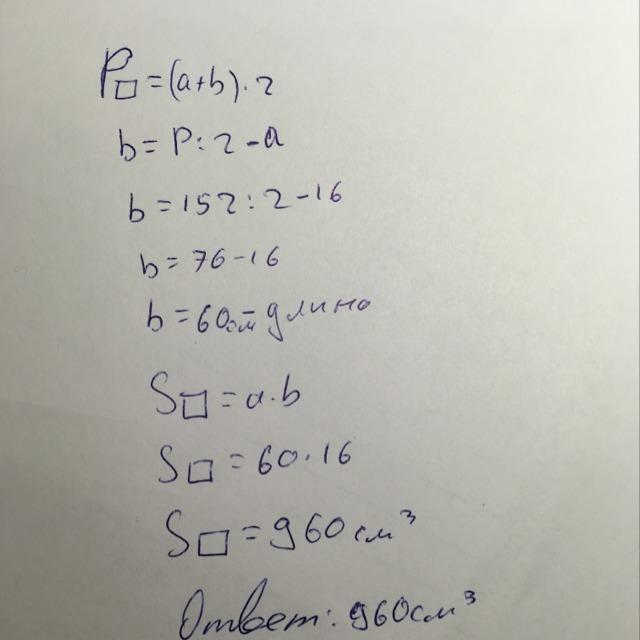 P□ = (a+b)·2
b = P:2-a
b = 152:2-16
b = 76-16
b = 60см длина
S□ = a·b
S□ = 60·16
S□ = 960 см³
Ответ: 960см³